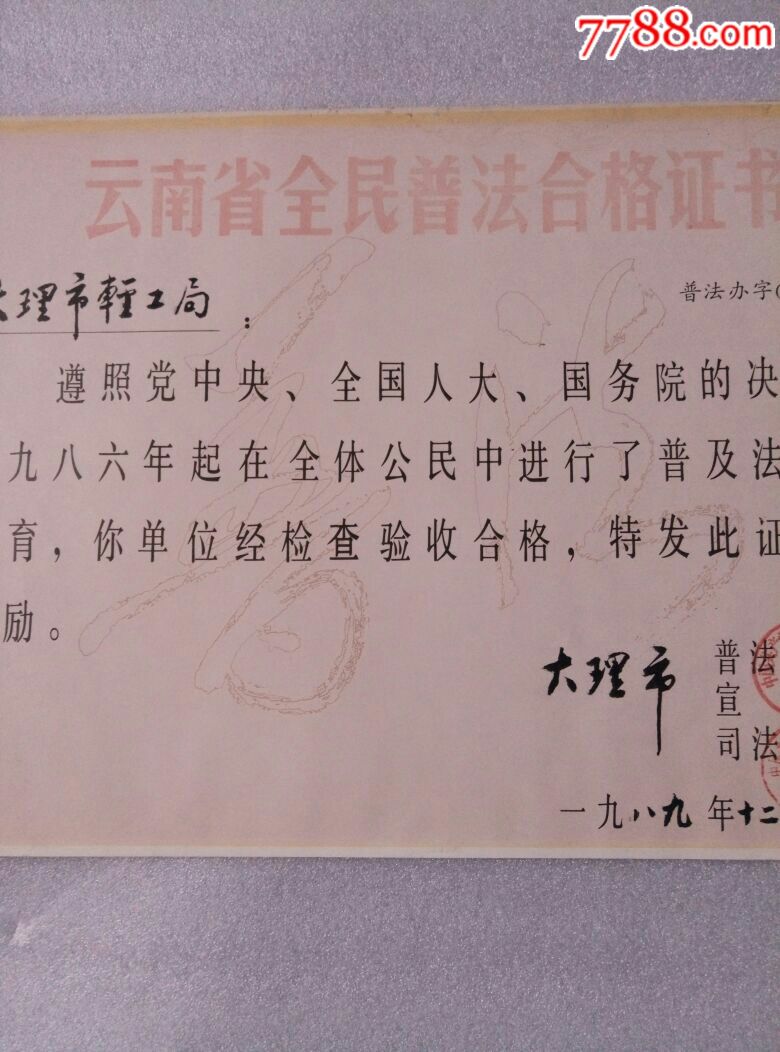 7788.com
云南省全民普法合格证书
大理市轻工局：
普法办字(
遵照党中央、全国人大、国务院的决
九八六年起在全体公民中进行了普及法
育，你单位经检查验收合格，特发此证
励。
大理市
普法
宣
司法
一九八九年十二